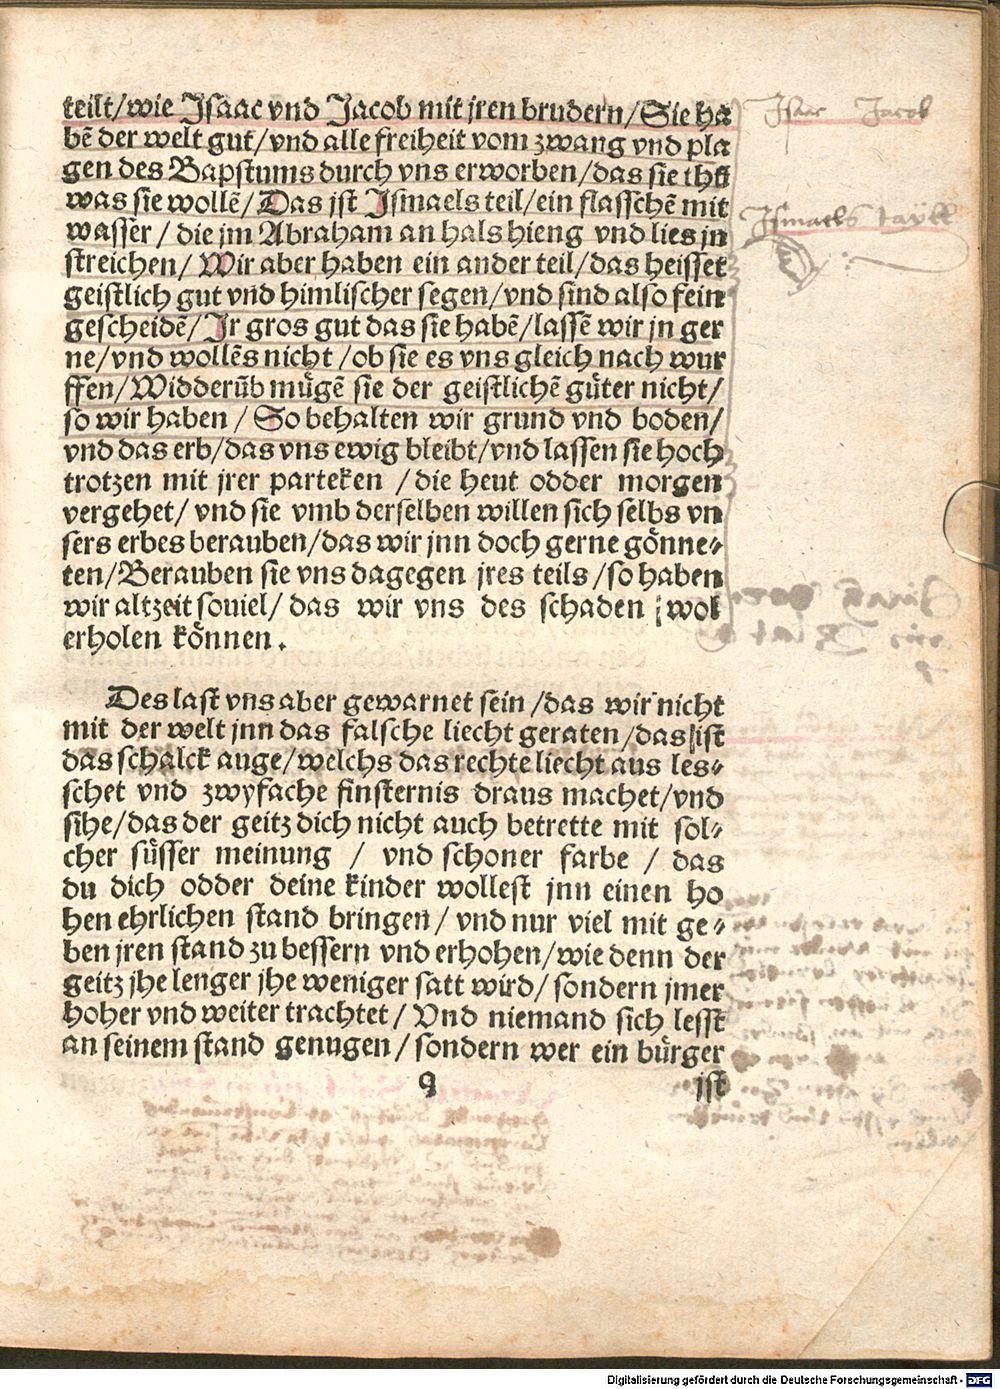 teilt/wie Isaac vnd Jacob mit jren brudern/Sie ha
bẽ der welt gut/vnd alle freiheit vom zwang vnd pla
gen des Bapstums durch vns erworben/das sie thũ
was sie wollẽ/Das jst Ismaels teil/ein flasschẽ mit
wasser/die jm Abraham an hals hieng vnd lies jn
streichen/Wir aber haben ein ander teil/das heisset
geistlich gut vnd himlischer segen/vnd sind also fein
gescheidẽ/Ir gros gut das sie habẽ/lassẽ wir jn ger
ne/vnd wollẽs nicht/ob sie es vns gleich nach wur
ffen/Widderũb mügẽ sie der geistlichẽ güter nicht/
so wir haben/So behalten wir grund vnd boden/
vnd das erb/das vns ewig bleibt/vnd lassen sie hoch
trotzen mit jrer parteken/die heut odder morgen
vergehet/vnd sie vmb derselben willen sich selbs vn
sers erbes berauben/das wir jnn doch gerne gönne⸗
ten/Berauben sie vns dagegen jres teils/so haben
wir altzeit souiel/das wir vns des schaden wol
erholen können.
Des last vns aber gewarnet sein/das wir nicht
mit der welt jnn das falsche liecht geraten/das ist
das schalck auge/welchs das rechte liecht aus les⸗
schet vnd zwyfache finsternis draus machet/vnd
sihe/das der geitz dich nicht auch betrette mit sol⸗
cher süsser meinung/vnd schoner farbe/das
du dich odder deine kinder wollest jnn einen ho
hen ehrlichen stand bringen/vnd nur viel mit ge⸗
ben jren stand zu bessern vnd erhohen/wie denn der
geitz jhe lenger jhe weniger satt wird/sondern jmer
hoher vnd weiter trachtet/Vnd niemand sich lesst
an seinem stand genugen/sondern wer ein bürger
q jst
Isaac Jacob
Ismaels tayll
Digitalisierung gefördert durch die Deutsche Forschungsgemeinschaft - DFG